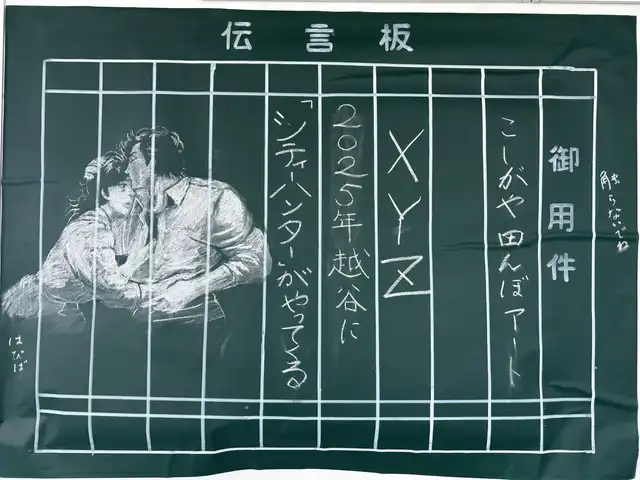 伝言板
御用件
こしがや田んぼアート
XYZ
2025年越谷に
「シティーハンター」がやってくる
触らないでね
はびば